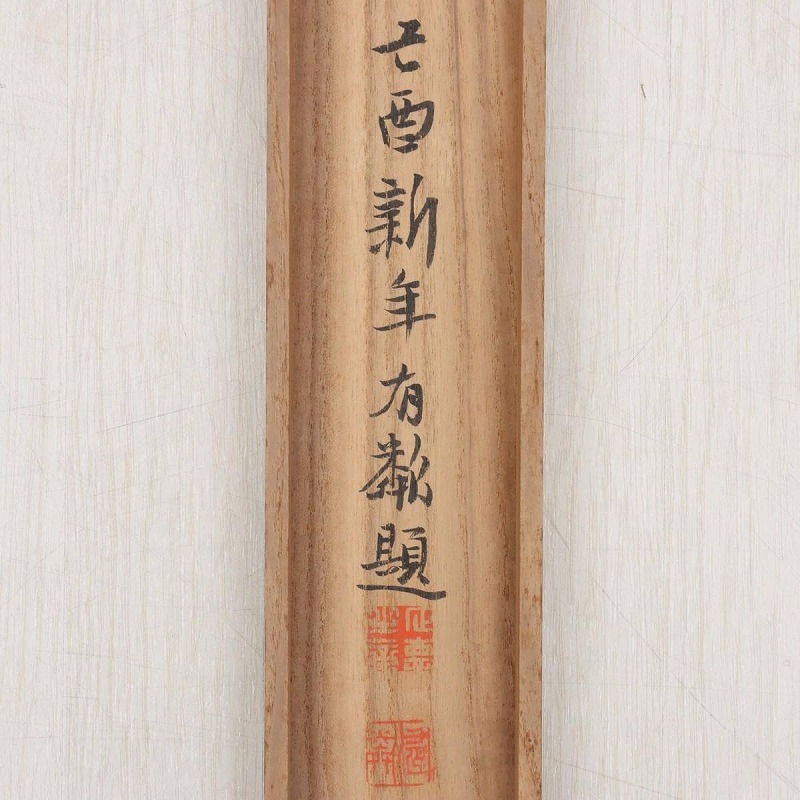 己酉新年有鄰題